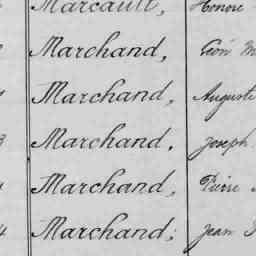 Marcault, Honoré
Marchand, Léon
Marchand, Auguste
Marchand. Joseph
Marchand, Pierre
Marchand, Jean